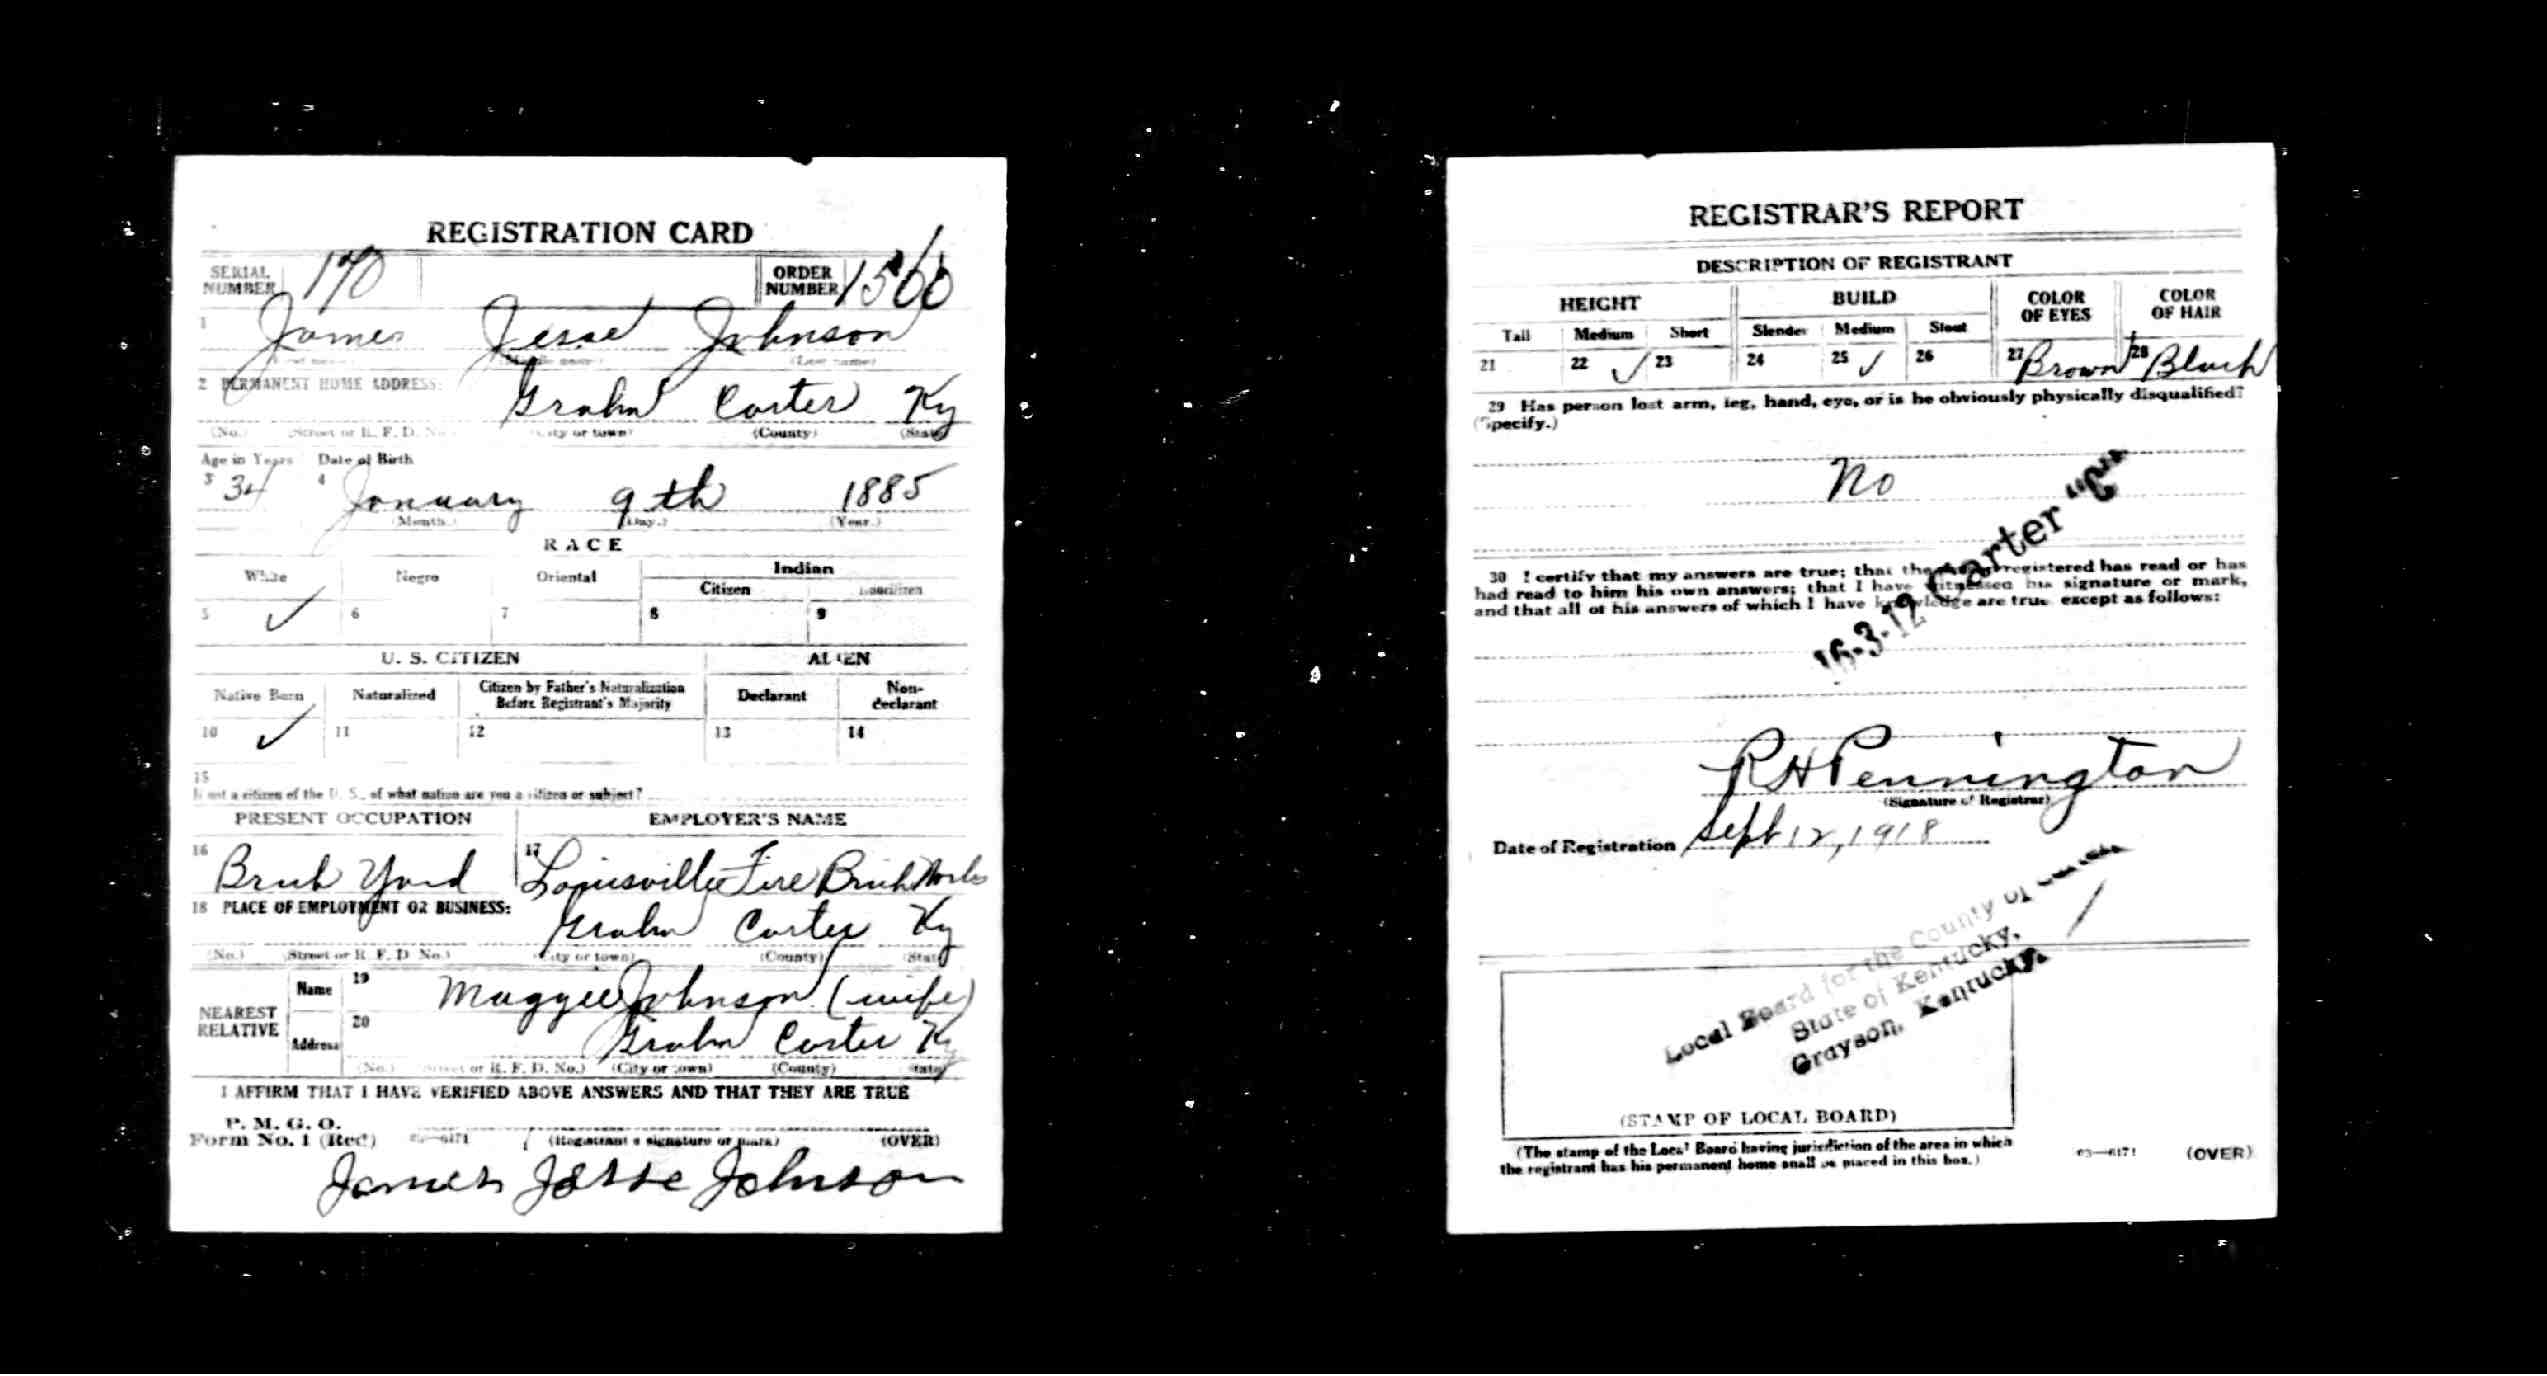 REGISTRATION CARD
SERIAL NUMBER 170 ORDER NUMBER 1560
1 James Jesse Johnson
(First name) (Middle name) (Last name)
2 PERMANENT HOME ADDRESS:
Grahn Carter Ky
(No.) (Street or R. F. D. No.) (City or town) (County) (State)
Age in Years Date of Birth
3 34 4 January 9th 1885
(Month.) (Day.) (Year.)
RACE
White Negro Oriental Indian
Citizen Noncitizen
5 ✓ 6 7 8 9
U. S. CITIZEN ALIEN
Native Born Naturalized Citizen by Father's Naturalization Before Registrant's Majority Declarant Non-declarant
10 ✓ 11 12 13 14
15
If not a citizen of the U. S., of what nation are you a citizen or subject?
PRESENT OCCUPATION EMPLOYER'S NAME
16 Brick Yard 17 Louisville Fire Brick Works
18 PLACE OF EMPLOYMENT OR BUSINESS:
Grahn Carter Ky
(No.) (Street or R. F. D. No.) (City or town) (County) (State)
NEAREST RELATIVE
Name 19 Maggie Johnson (wife)
Address 20 Grahn Carter Ky
(No.) (Street or R. F. D. No.) (City or town) (County) (State)
I AFFIRM THAT I HAVE VERIFIED ABOVE ANSWERS AND THAT THEY ARE TRUE
P. M. G. O.
Form No. 1 (Red) 03—6171 (Registrant's signature or mark) (OVER)
James Jesse Johnson
REGISTRAR'S REPORT
DESCRIPTION OF REGISTRANT
HEIGHT BUILD COLOR OF EYES COLOR OF HAIR
Tall Medium Short Slender Medium Stout
21 22 ✓ 23 24 25 ✓ 26 27 Brown 28 Black
29 Has person lost arm, leg, hand, eye, or is he obviously physically disqualified?
(Specify.)
No
16-3-12 Carter "C"
30 I certify that my answers are true; that the person registered has read or has
had read to him his own answers; that I have witnessed his signature or mark,
and that all of his answers of which I have knowledge are true, except as follows:
R H Pennington
(Signature of Registrar)
Date of Registration Sept 12, 1918
Local Board for the County of Carter
State of Kentucky,
Grayson, Kentucky.
(STAMP OF LOCAL BOARD)
(The stamp of the Local Board having jurisdiction of the area in which
the registrant has his permanent home shall be placed in this box.)
03—6171 (OVER)